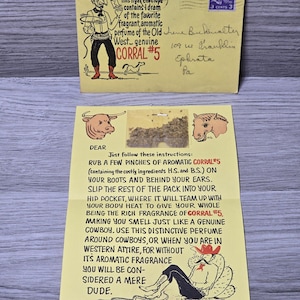 contains 1 dram
of the favorite
fragrant, aromatic
perfume of the Old
West... genuine
CORRAL #5
3 CENTS 3
Ephrata
Pa
DEAR
Just follow these instructions:
RUB A FEW PINCHES OF AROMATIC CORRAL #5
(containing the costly ingredients H.S. and B.S.) ON
YOUR BOOTS AND BEHIND YOUR EARS.
SLIP THE REST OF THE PACK INTO YOUR
HIP POCKET, WHERE IT WILL TEAM UP WITH
YOUR BODY HEAT TO GIVE YOUR WHOLE
BEING THE RICH FRAGRANCE OF CORRAL #5,
MAKING YOU SMELL JUST LIKE A GENUINE
COWBOY. USE THIS DISTINCTIVE PERFUME
AROUND COWBOYS, OR WHEN YOU ARE IN
WESTERN ATTIRE, FOR WITHOUT
ITS AROMATIC FRAGRANCE
YOU WILL BE CON-
SIDERED A MERE
DUDE.